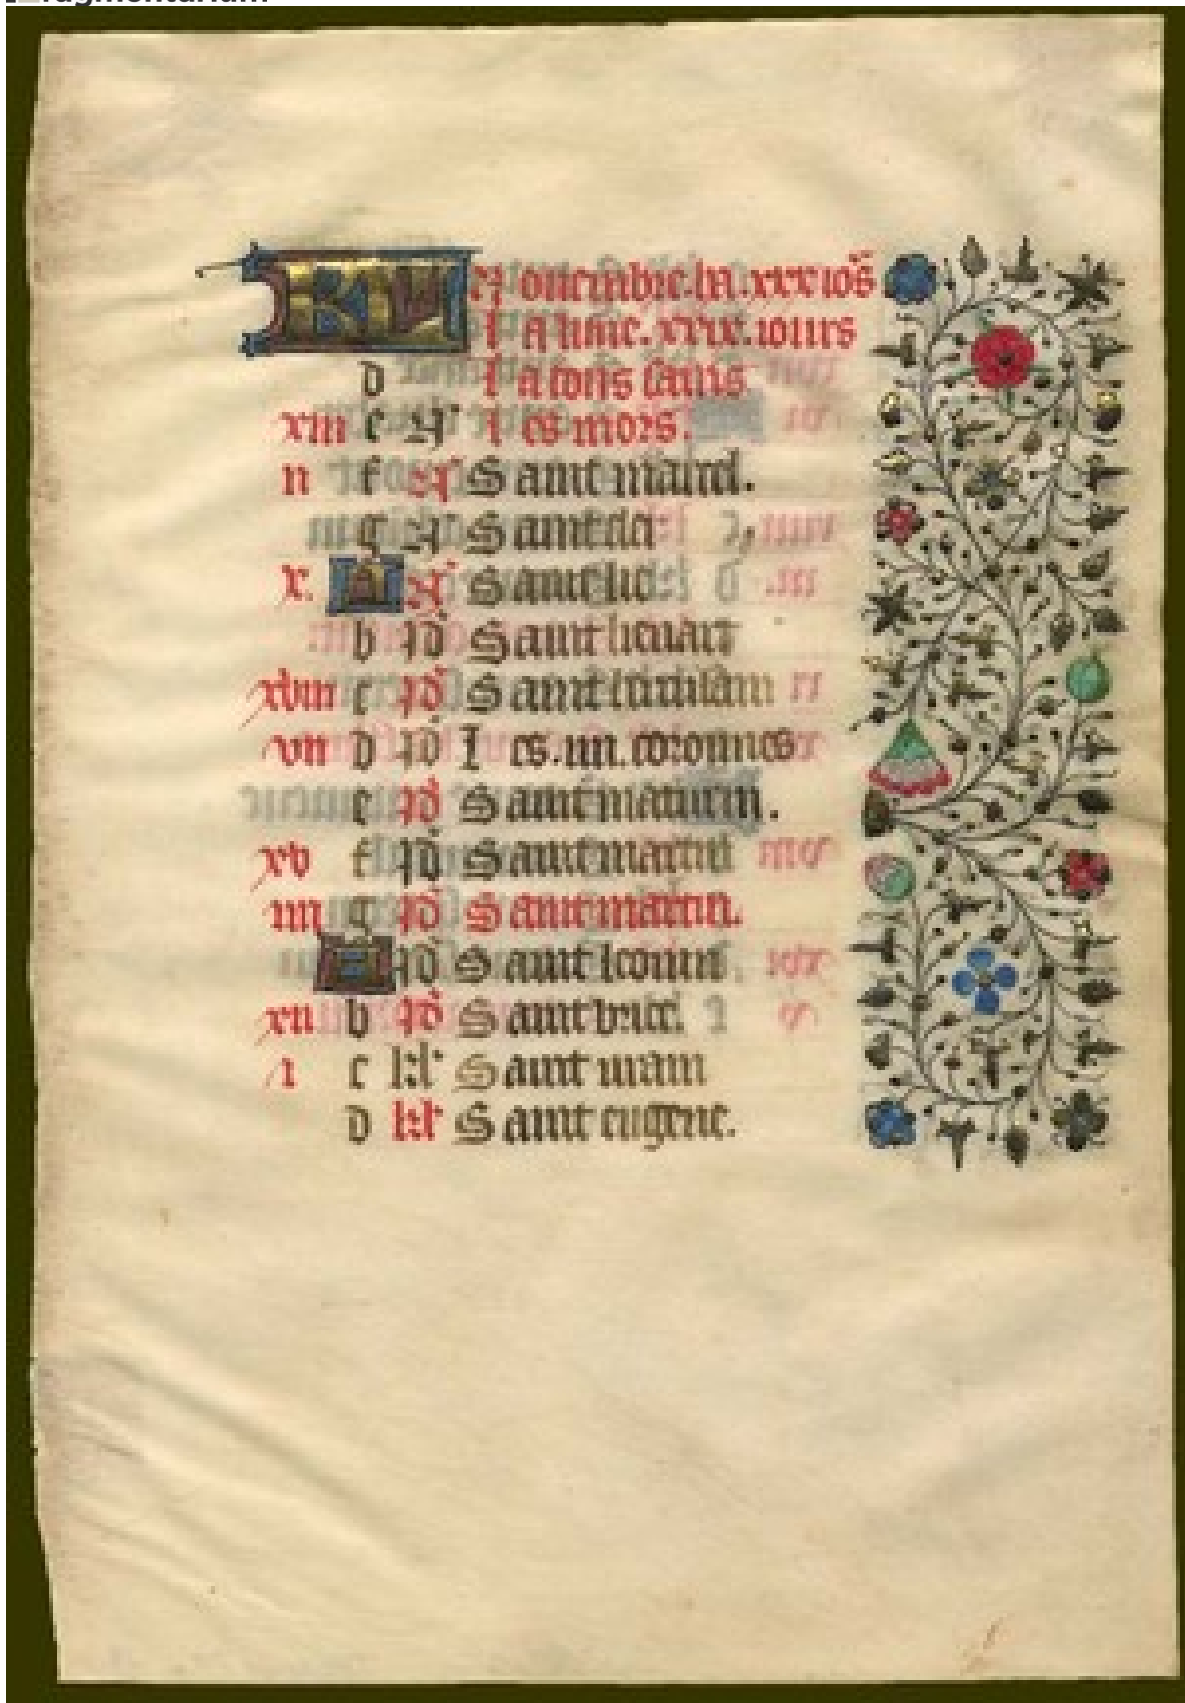 fragmentarium
KL Nouembre. la. xxx ios
La lune. xxix. iours
d La tous sains
xiii e N Les mors.
ii f N Saint marcel.
g N Saint
x. A N Saint
b Id Saint lienart
xviii c Id Saint
vii d Id Les. iiii. coronnes
e Id Saint maturin.
xv f Id Saint martin
iiii g Id Saint martin.
A Id Saint
xii b Id Saint brice.
i c kl' Saint
d kl' Saint eugene.